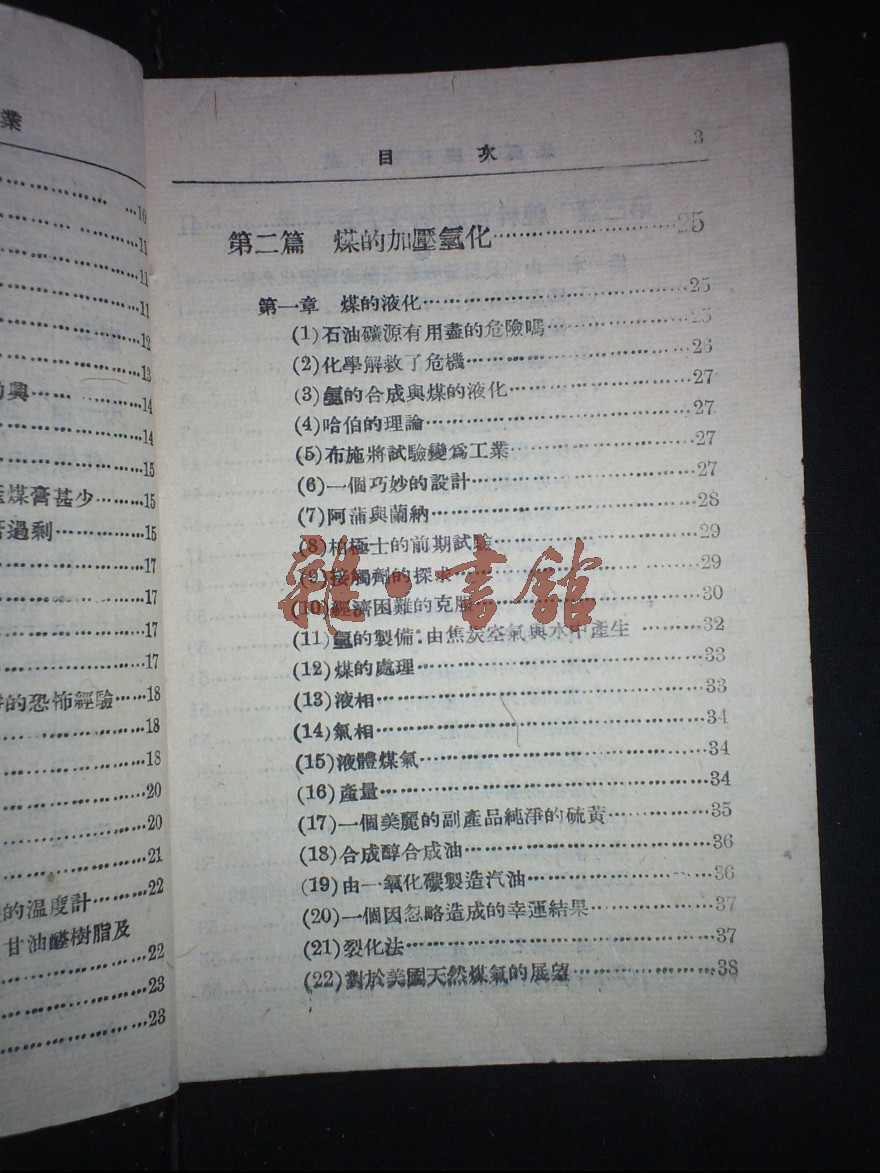 業
10
11
11
11
12
13
興 14
14
15
煤膏甚少 15
過剩 15
17
17
17
17
的恐怖經驗 18
18
18
20
20
21
的温度計 22
甘油醛樹脂及
22
23
23
目 次 3
第二篇 煤的加壓氫化 25
第一章 煤的液化 25
(1)石油礦源有用盡的危險嗎 25
(2)化學解救了危機 26
(3)氨的合成與煤的液化 27
(4)哈伯的理論 27
(5)布施將試驗變爲工業 27
(6)一個巧妙的設計 27
(7)阿蒲與蘭納 28
(8)柏極士的前期試驗 29
(9)接觸劑的探求 29
(10)經濟困難的克服 30
(11)氫的製備:由焦炭空氣與水中產生 32
(12)煤的處理 33
(13)液相 33
(14)氣相 34
(15)液體煤氣 34
(16)產量 34
(17)一個美麗的副產品純淨的硫黄 35
(18)合成醇合成油 36
(19)由一氧化碳製造汽油 36
(20)一個因忽略造成的幸運結果 37
(21)裂化法 37
(22)對於美國天然煤氣的展望 38
雜·書館